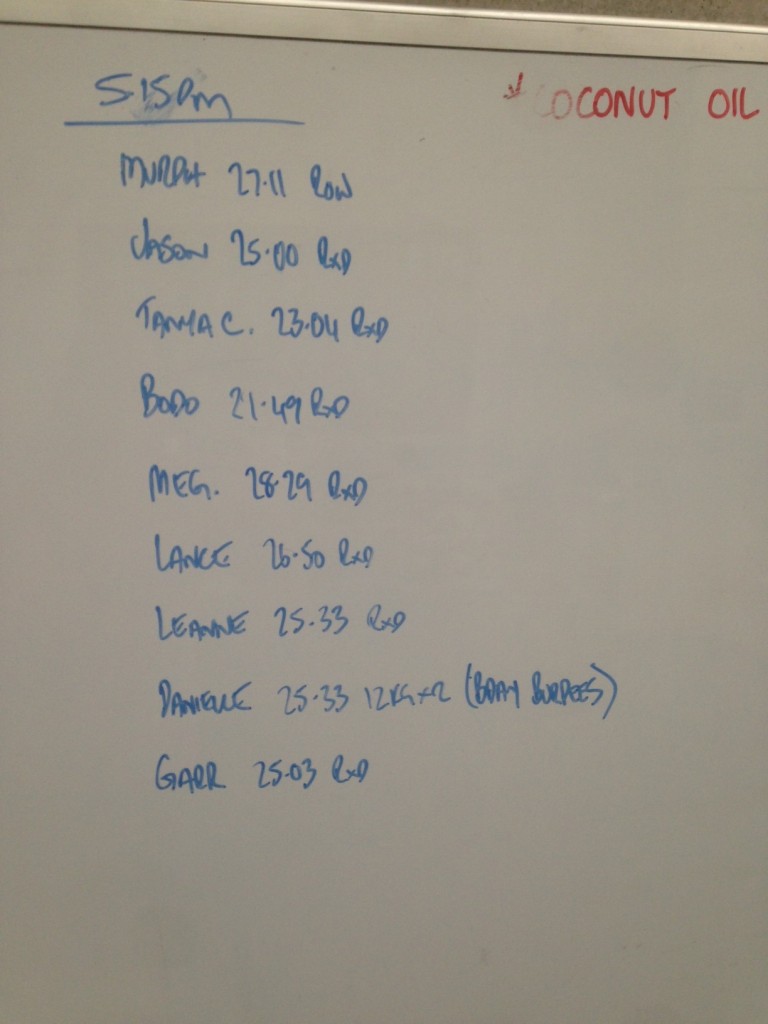 515pm
COCONUT OIL
MURPH 27.11 ROW
JASON 25.00 RXD
TANYA C. 23.04 RXD
BODO 21.49 RXD
MEG. 28.29 RXD
LANCE 26.50 RXD
LEANNE 25.33 RXD
DANIELLE 25.33 12KG x2 (BDAY BURPEES)
GARR 25.03 RXD